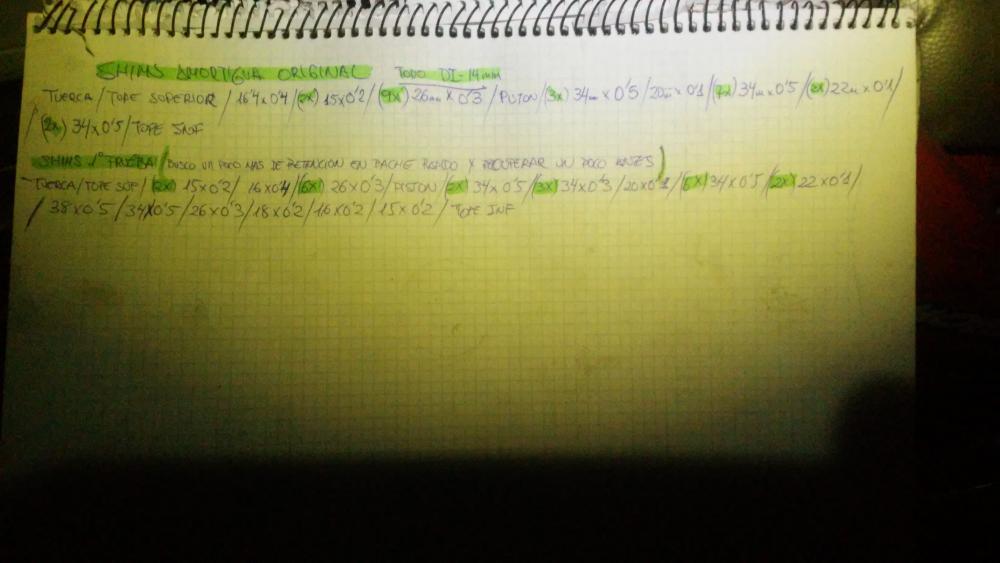 SHIMS AMORTIGUA ORIGINAL TODO DI-14mm
TUERCA / TOPE SUPERIOR / 16'4x0'4 / (2x) 15x0'2 / (9x) 26mm x 0'3 / PISTON / (3x) 34m x 0'5 / 20m x 0'1 / (7x) 34m x 0'5 / (2x) 22m x 0'1 /
/ (2x) 34x0'5 / TOPE INF
SHIMS 1ª PRUEBA (BUSCO UN POCO MAS DE RETENCION EN BACHE RAPIDO Y RECUPERAR UN POCO ANTES)
TUERCA / TOPE SUP / (2x) 15x0'2 / 16x0'4 / (6x) 26x0'3 / PISTON / (2x) 34x0'5 / (3x) 34x0'3 / 20x0'1 / (5x) 34x0'5 / (2x) 22x0'1 /
/ 38x0'5 / 34x0'5 / 26x0'3 / 18x0'2 / 16x0'2 / 15x0'2 / TOPE INF